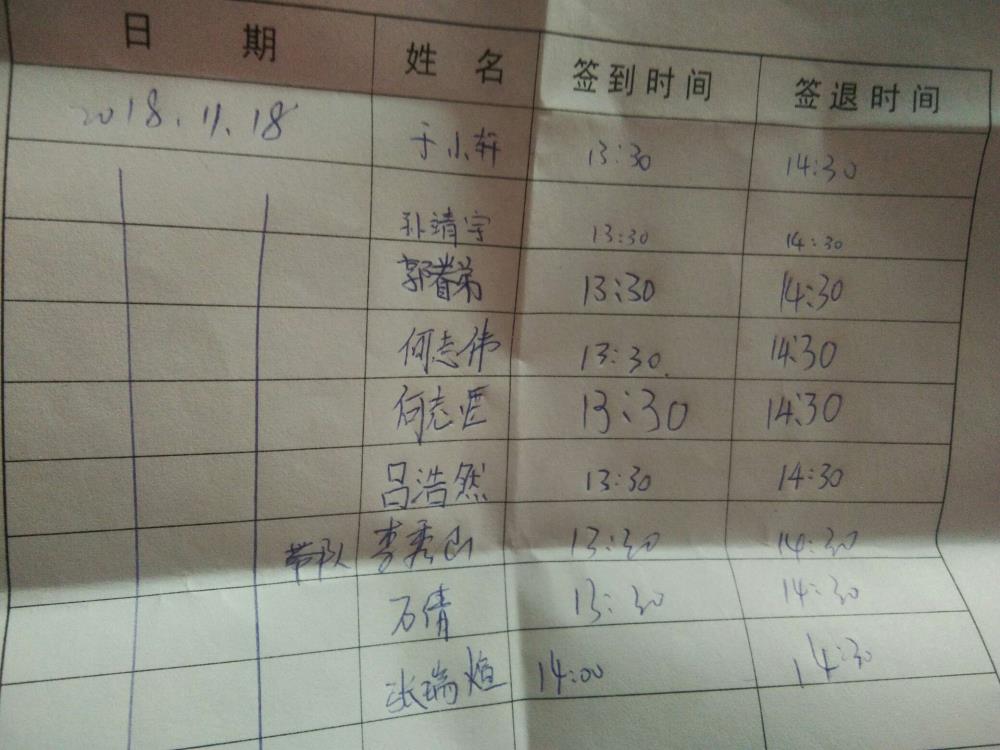 日 期 姓 名 签到时间 签退时间
2018.11.18 于小轩 13:30 14:30
孙靖宇 13:30 14:30
郭眷弟 13:30 14:30
何志伟 13:30. 14:30
何志 13:30 14:30
吕浩然 13:30 14:30
带队 李秀山 13:30 14:30
石倩 13:30 14:30
张瑞煊 14:00 14:30